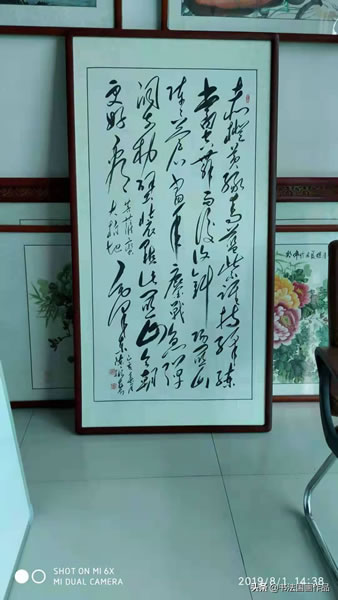 赤橙黄绿青蓝紫谁持彩练
当空舞雨后复斜阳关山
阵阵苍当年鏖战急弹
洞前村壁装点此关山今朝
更好看
菩萨蛮
大柏地
毛泽东
SHOT ON MI 6X
MI DUAL CAMERA
2019/8/1 14:38
头条@书法国画作品